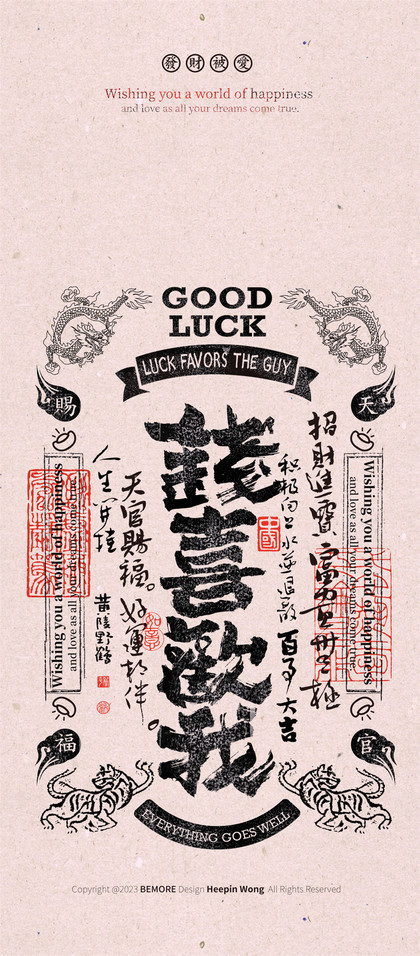 發財被愛
Wishing you a world of happiness
and love as all your dreams come true.
GOOD
LUCK
LUCK FAVORS THE GUY
天
賜
官
福
錢喜歡我
招財進寶
富可敵國
百事大吉
中國
天官賜福。好運相伴。
人生安佳
黄陵野鶴
Wishing you a world of happiness
and love as all your dreams come true.
Wishing you a world of happiness
and love as all your dreams come true.
EVERYTHING GOES WELL
Copyright @2023 BEMORE Design Heepin Wong. All Rights Reserved